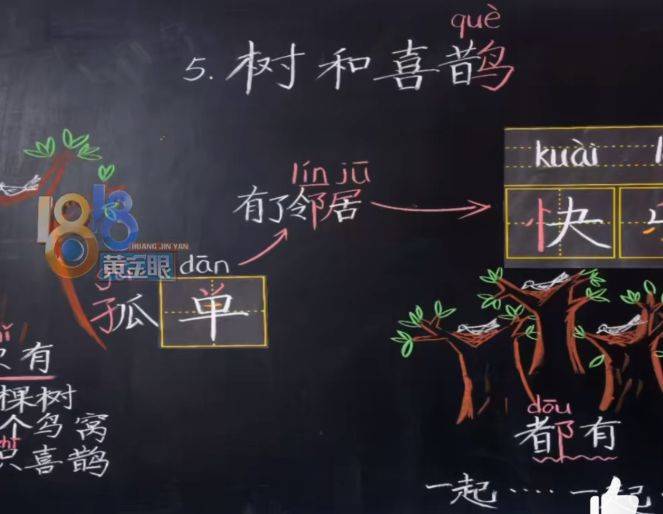 què
5. 树和喜鹊
kuài
快
lín jū
有了邻居
1818
HUANG JIN YAN
黄金眼
dān
孤单
只有
棵树
个鸟窝
只喜鹊
dōu
都有
一起……一起